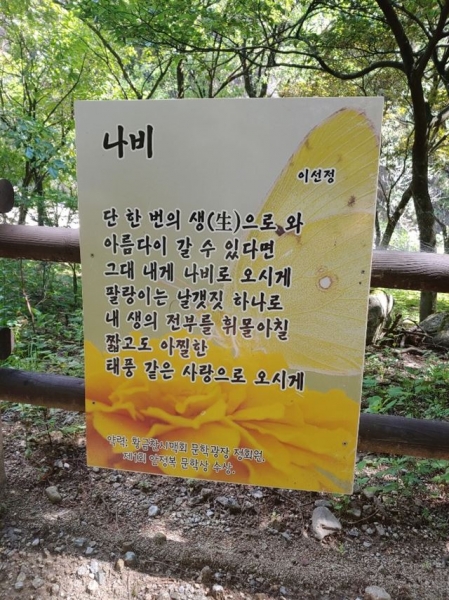 나비
이선정
단 한 번의 생(生)으로 와
아름다이 갈 수 있다면
그대 내게 나비로 오시게
팔랑이는 날갯짓 하나로
내 생의 전부를 휘몰아칠
짧고도 아찔한
태풍 같은 사랑으로 오시게
약력: 황금찬시맥회 문학광장 정회원.
제1회 안정복 문학상 수상.